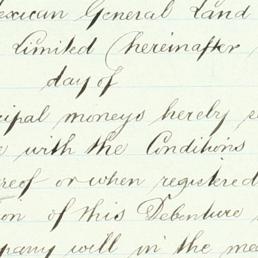 exican General Land
Limited (hereinafter
day of
cipal moneys hereby s
e with the Conditions
reof or when registered
ion of this Debenture
pany will in the mea